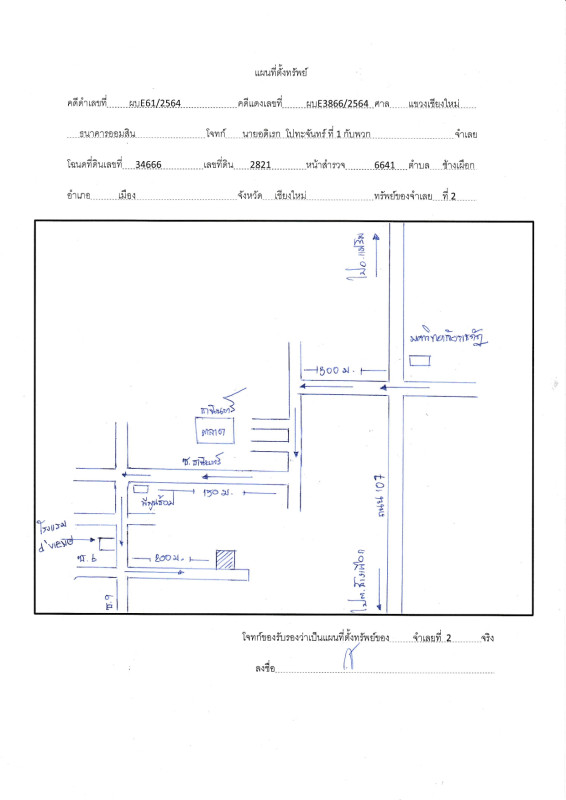 แผนที่ตั้งทรัพย์
คดีดำเลขที่ ผบE61/2564 คดีแดงเลขที่ ผบE3866/2564 ศาล แขวงเชียงใหม่
ธนาคารออมสิน โจทก์ นายอดิเรก โปทะจันทร์ ที่ 1 กับพวก จำเลย
โฉนดที่ดินเลขที่ 34666 เลขที่ดิน 2821 หน้าสำรวจ 6641 ตำบล ช้างเผือก
อำเภอ เมือง จังหวัด เชียงใหม่ ทรัพย์ของจำเลย ที่ 2
ไป อ.แม่ริม
300 ม.
ธานินทร์
ตลาด
ซ.ธานินทร์
150 ม.
ถนน 107
โรงแรม
d'vieng
ซ.6
200 ม.
ไป ต.ช้างเผือก
โจทก์ขอรับรองว่าเป็นแผนที่ตั้งทรัพย์ของ จำเลยที่ 2 จริง
ลงชื่อ